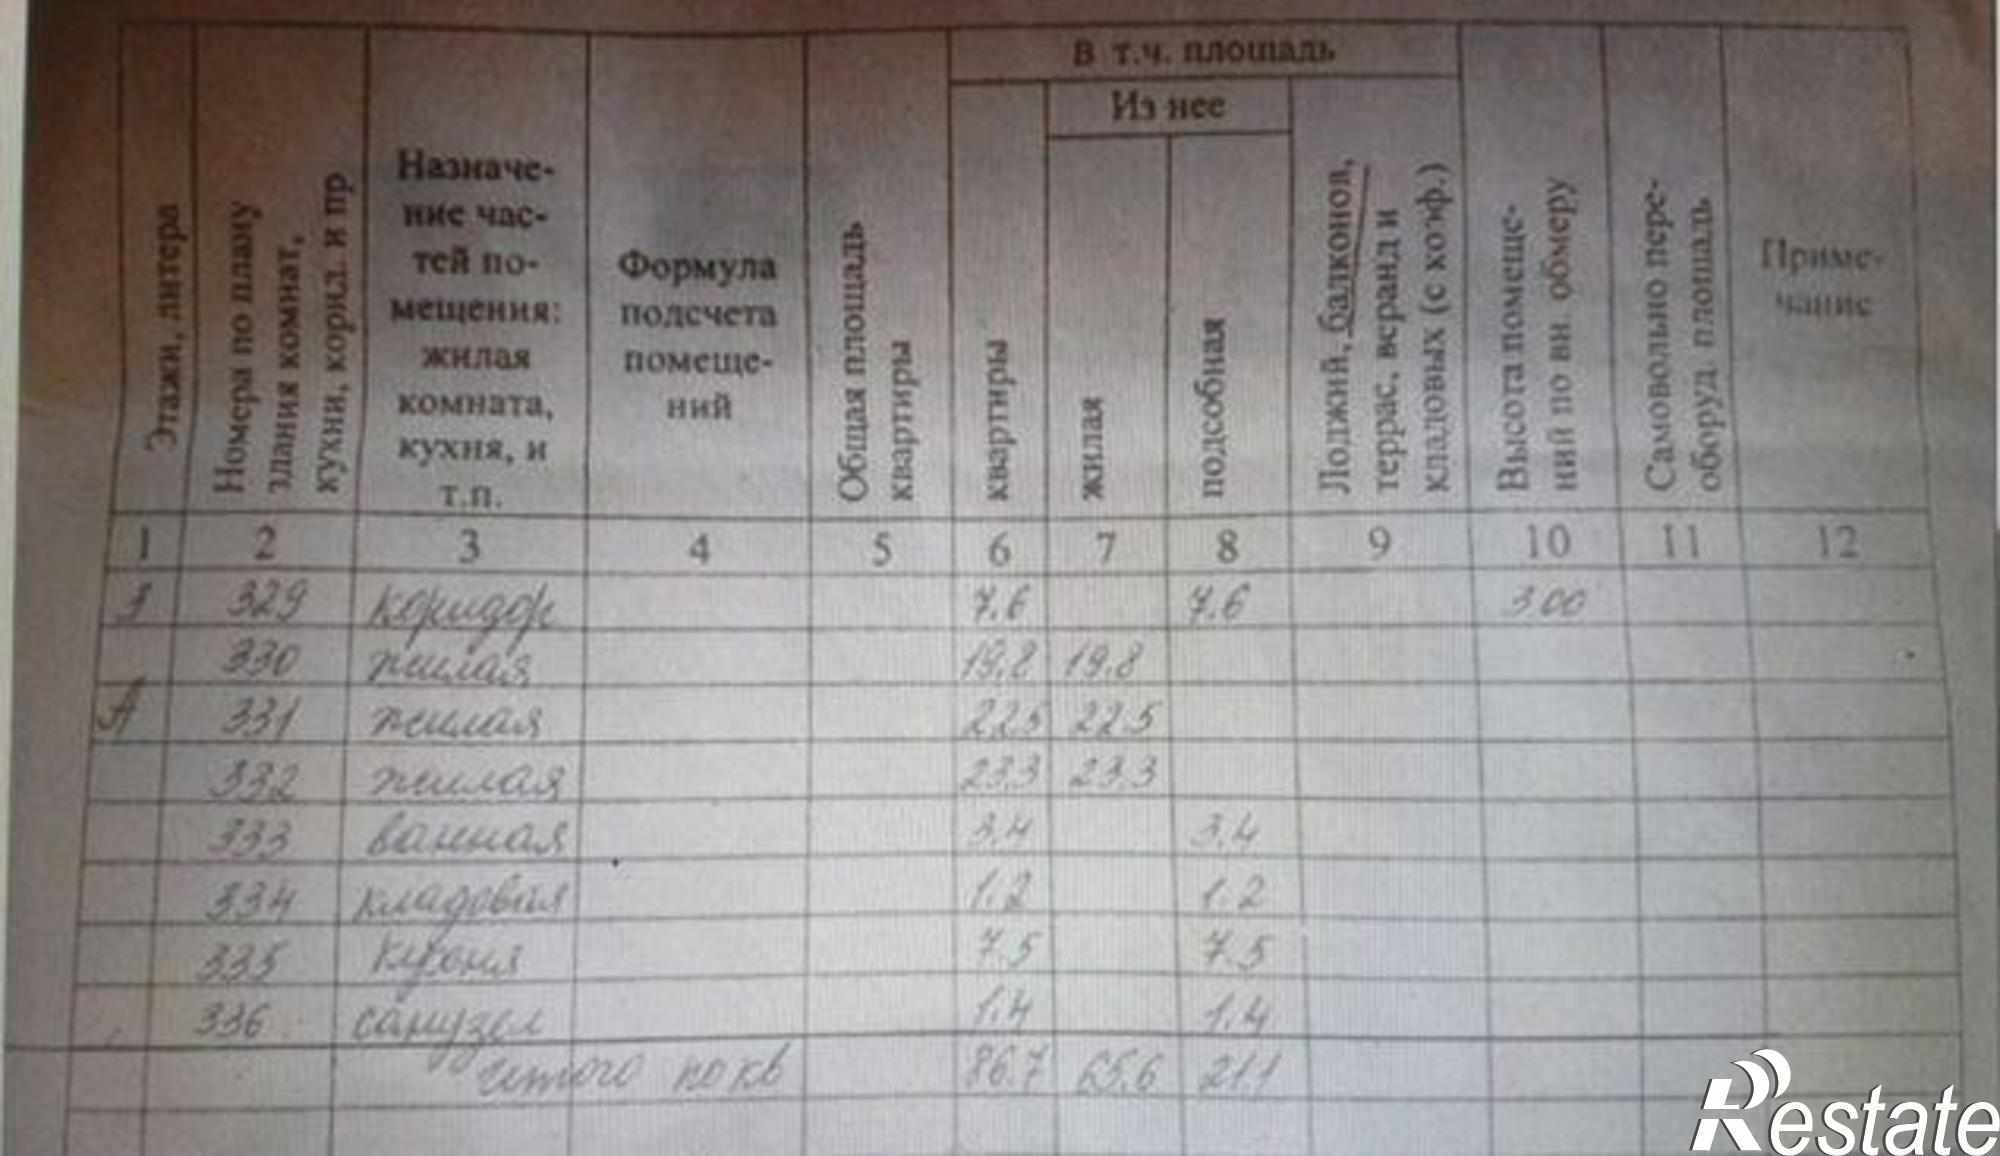 В т.ч. площадь
Из нее
Этажи, литера
Номера по плану
здания комнат,
кухни, корид. и пр
Назначе-
ние час-
тей по-
мещения:
жилая
комната,
кухня, и
т.п.
Формула
подсчета
помеще-
ний
Общая площадь
квартиры
квартиры
жилая
подсобная
Лоджий, балконов,
террас, веранд и
кладовых (с коэф.)
Высота помеще-
ний по вн. обмеру
Самовольно пере-
оборуд. площадь
Приме-
чание
1 2 3 4 5 6 7 8 9 10 11 12
329 коридор 7.6 7.6 3.00
330 жилая 19.8 19.8
А 331 жилая 22.5 22.5
332 жилая 23.3 23.3
333 ванная 3.4 3.4
334 кладовая 1.2 1.2
335 кухня 7.5 7.5
336 санузел 1.4 1.4
итого по кв 86.7 65.6 21.1
Restate